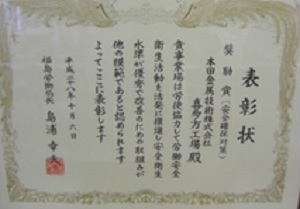 表彰状
奨励賞(安全確保対策)
本田金属技術株式会社
喜多方工場殿
貴事業場は労使協力して労働安全
衛生活動を活発に推進し安全衛生
水準が優秀で改善のための取組みが
他の模範であると認められます
よってここに表彰します
平成二十八年十月六日
福島労働局長 島浦幸夫